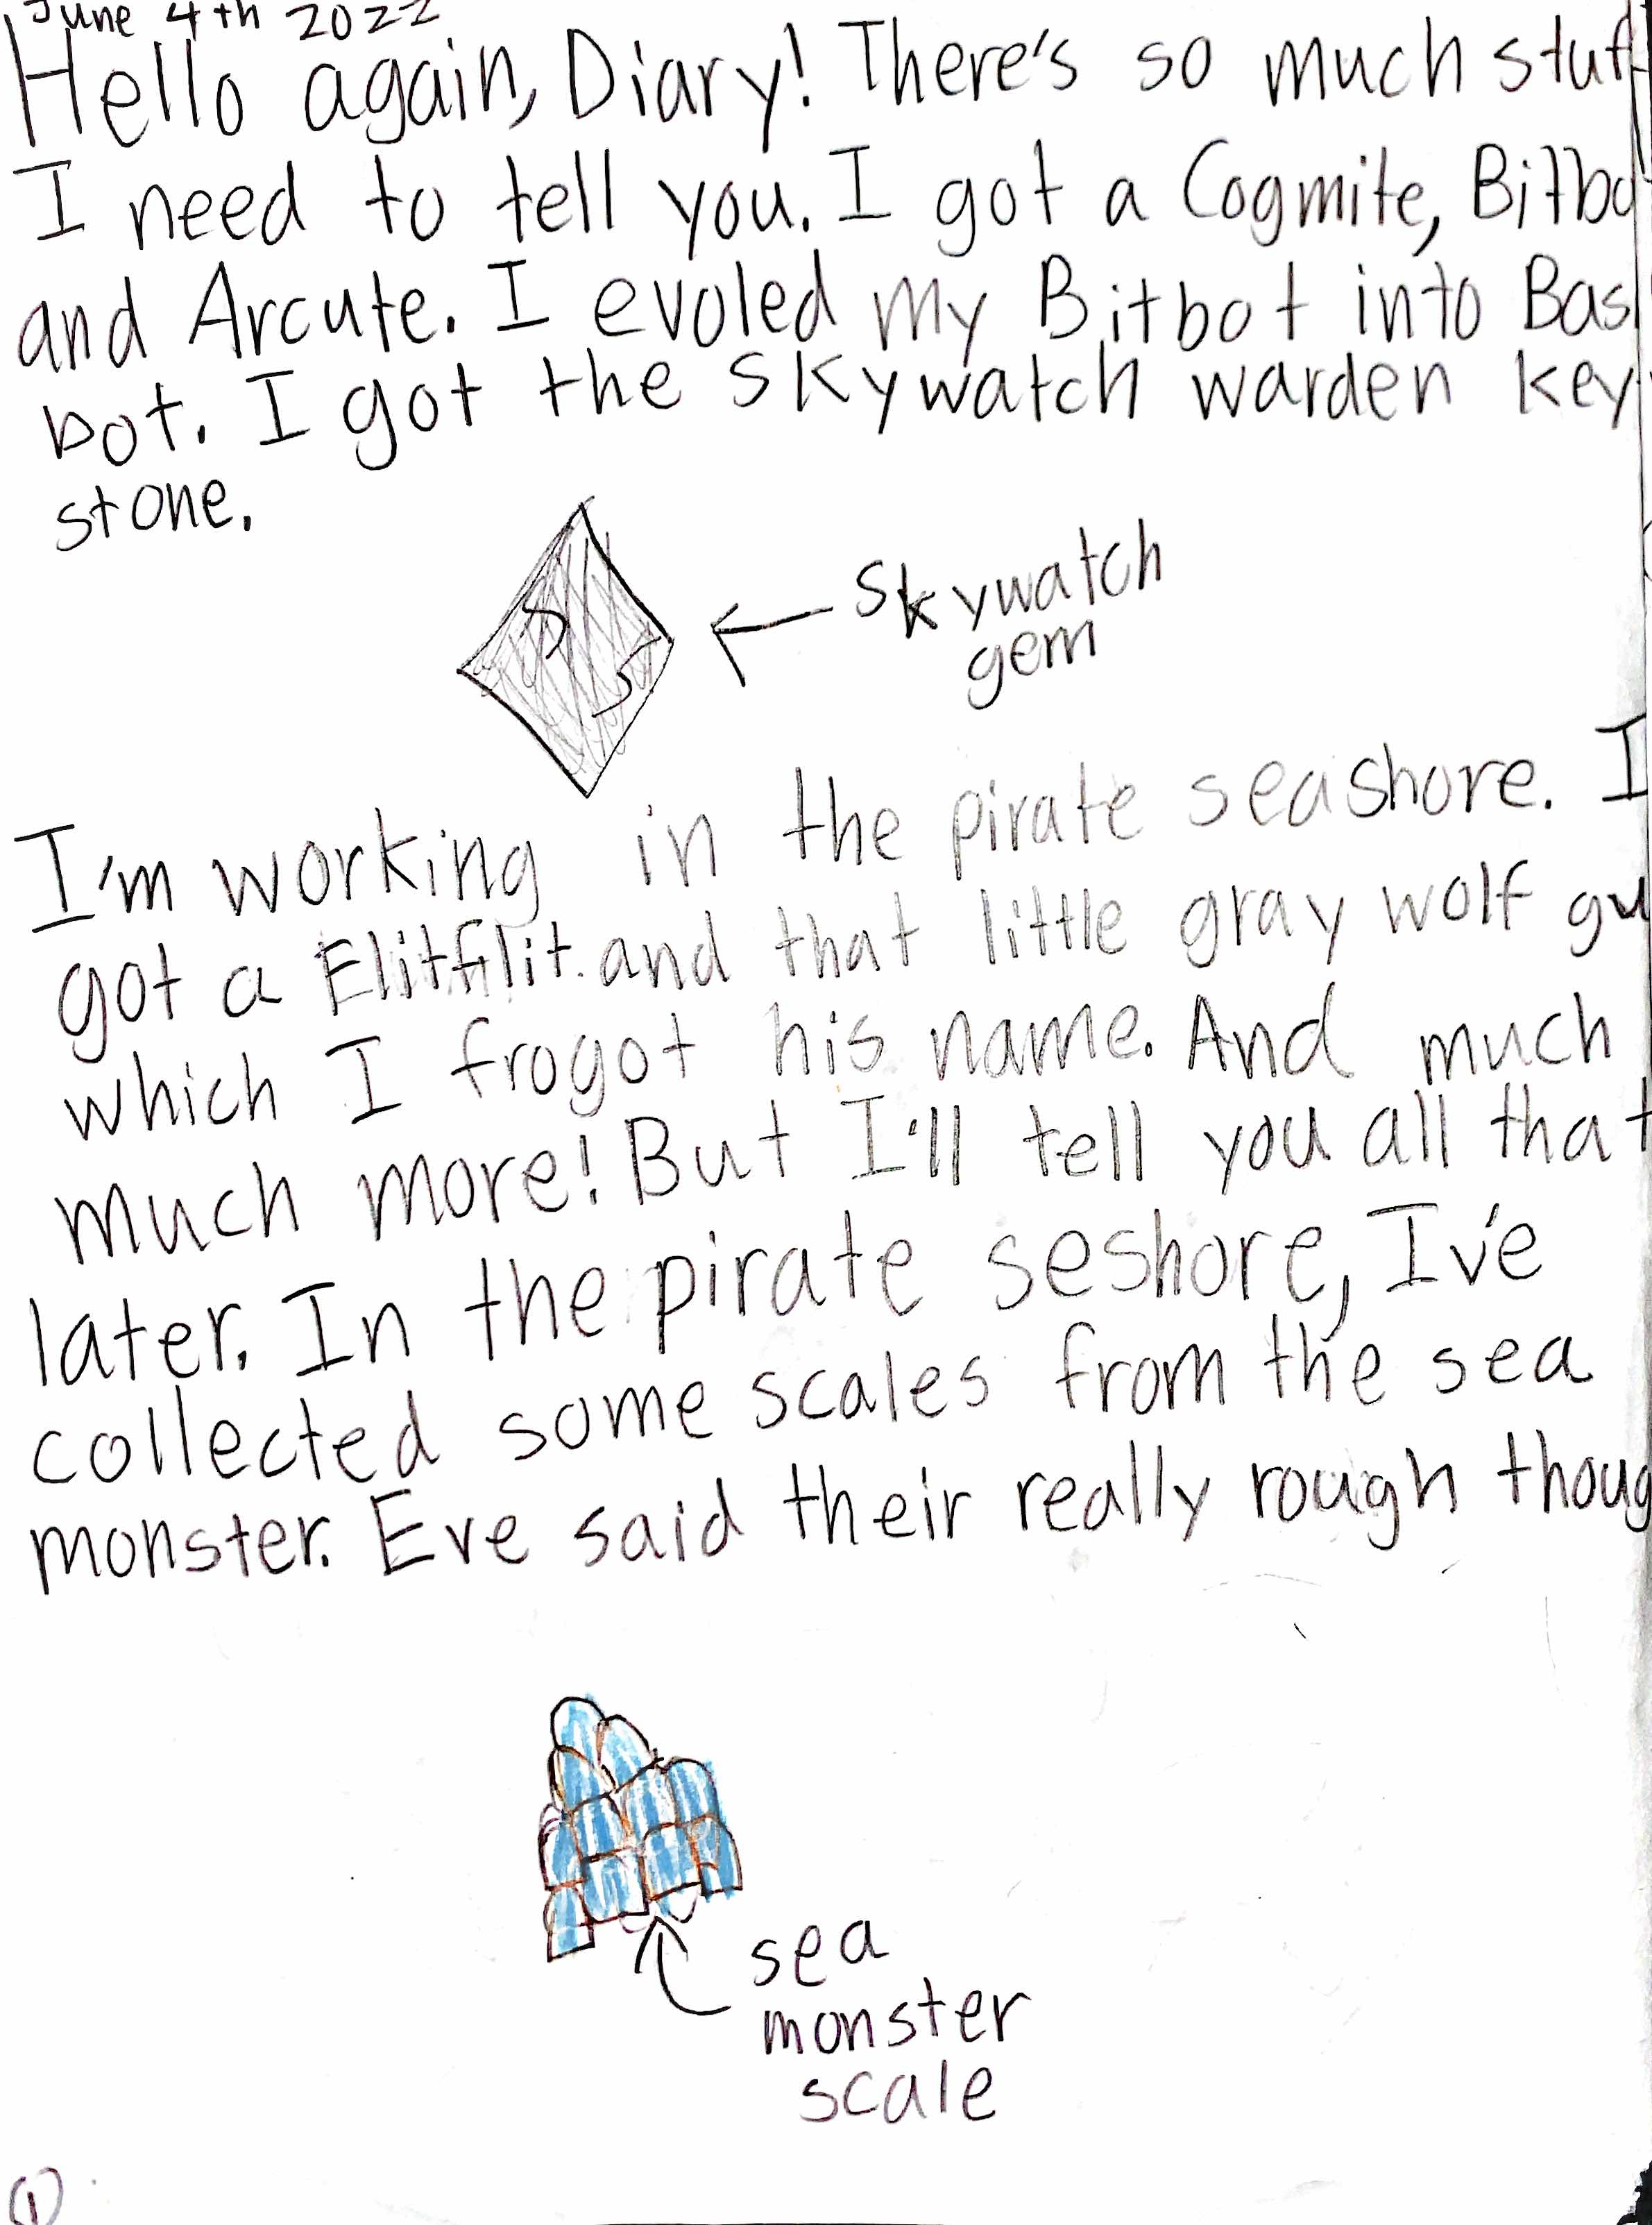 June 4th 2022
Hello again, Diary! There's so much stuff
I need to tell you. I got a Cogmite, Bitbo
and Arcute. I evoled my Bitbot into Bas
bot. I got the skywatch warden key
stone.
Skywatch
gem
I'm working in the pirate seashore. I
got a Elitflit. and that little gray wolf gu
which I frogot his name. And much
much more! But I'll tell you all that
later. In the pirate seshore, I've
collected some scales from the sea
monster. Eve said their really rough thoug
sea
monster
scale
1